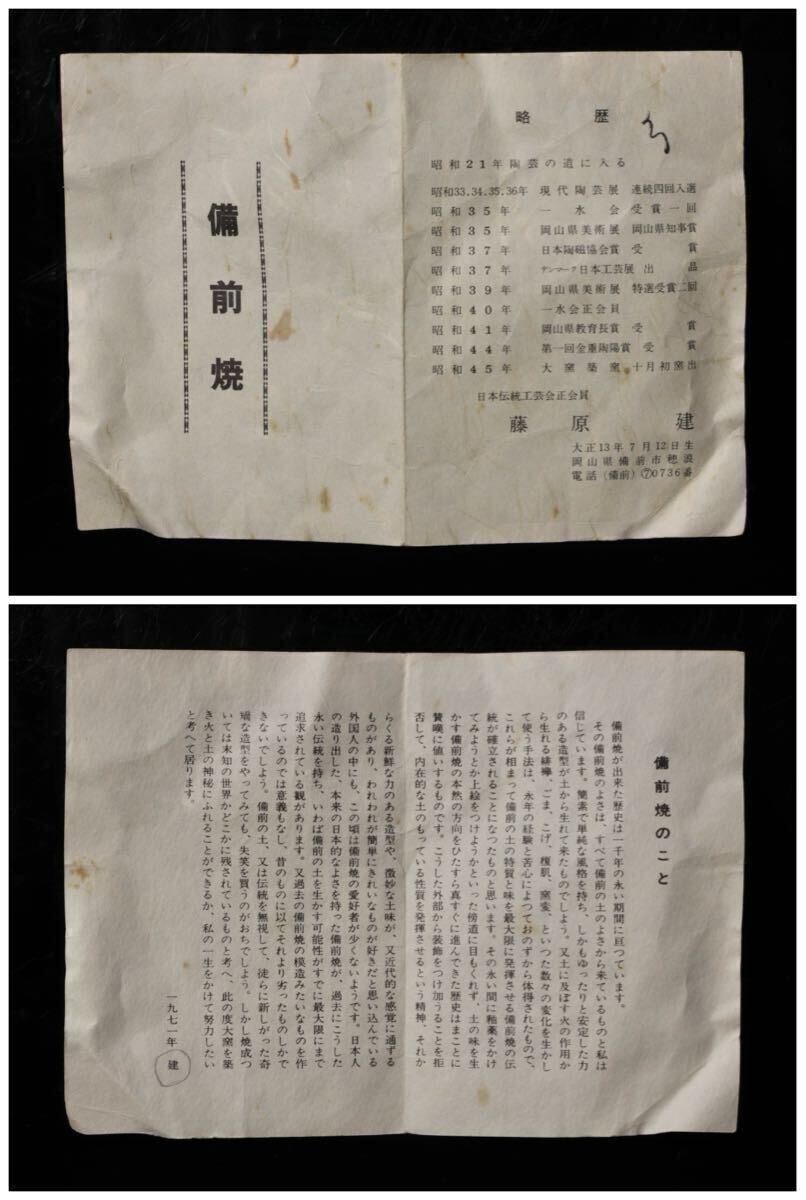 備前焼
略歴
昭和21年陶芸の道に入る
昭和33.34.35.36年 現代陶芸展 連続四回入選
昭和35年 一水会 受賞一回
昭和35年 岡山県美術展 岡山県知事賞
昭和37年 日本陶磁協会賞 受賞
昭和37年 デンマーク日本工芸展 出品
昭和39年 岡山県美術展 特選受賞二回
昭和40年 一水会正会員
昭和41年 岡山県教育長賞 受賞
昭和44年 第一回金重陶陽賞 受賞
昭和45年 大窯築窯 十月初窯出
日本伝統工芸会正会員
藤原 建
大正13年7月12日生
岡山県備前市穂浪
電話(備前)⑦0736番
備前焼のこと
備前焼が出来た歴史は一千年の永い期間に亘つています。
その備前焼のよさは、すべて備前の土のよさから来ているものと私は
信じています。簡素で単純な風格を持ち、しかもゆったりと安定した力
のある造型が土から生れて来たものでしよう。又土に及ぼす火の作用か
ら生れる緋襷、ごま、こげ、榎肌、窯変、といつた数々の変化を生かし
て使う手法は、永年の経験と苦心によつておのずから体得されたもので、
これらが相まつて備前の土の特質と味を最大限に発揮させる備前焼の伝
統が確立されることになつたものと思います。その永い間に釉薬をかけ
てみようとか上絵をつけようかといった傍道に目もくれず、土の味を生
かす備前焼の本然の方向をひたすら真すぐに進んできた歴史はまことに
賛嘆に値いするものです。こうした外部から装飾をつけ加うることを拒
否して、内在的な土のもっている性質を発揮させるという精神、それか
らくる新鮮な力のある造型や、微妙な土味が、又近代的な感覚に通ずる
ものがあり、われわれが簡単にきれいなものが好きだと思い込んでいる
外国人の中にも、この頃は備前焼の愛好者が少くないようです。日本人
の造り出した、本来の日本的なよさを持った備前焼が、過去にこうした
永い伝統を持ち、いわば備前の土を生かす可能性がすでに最大限にまで
追求されている観があります。又過去の備前焼の模造みたいなものを作
っているのでは意義もなし、昔のものに以てそれより劣ったものしかで
きないでしよう。備前の土、又は伝統を無視して、徒らに新しがった奇
矯な造型をやってみても、失笑を買うのがおちでしよう。しかし焼成つ
いては末知の世界かどこかに残されているものと考へ、此の度大窯を築
き火と土の神秘にふれることができるか、私の一生をかけて努力したい
と考へて居ります。
一九七一年 建